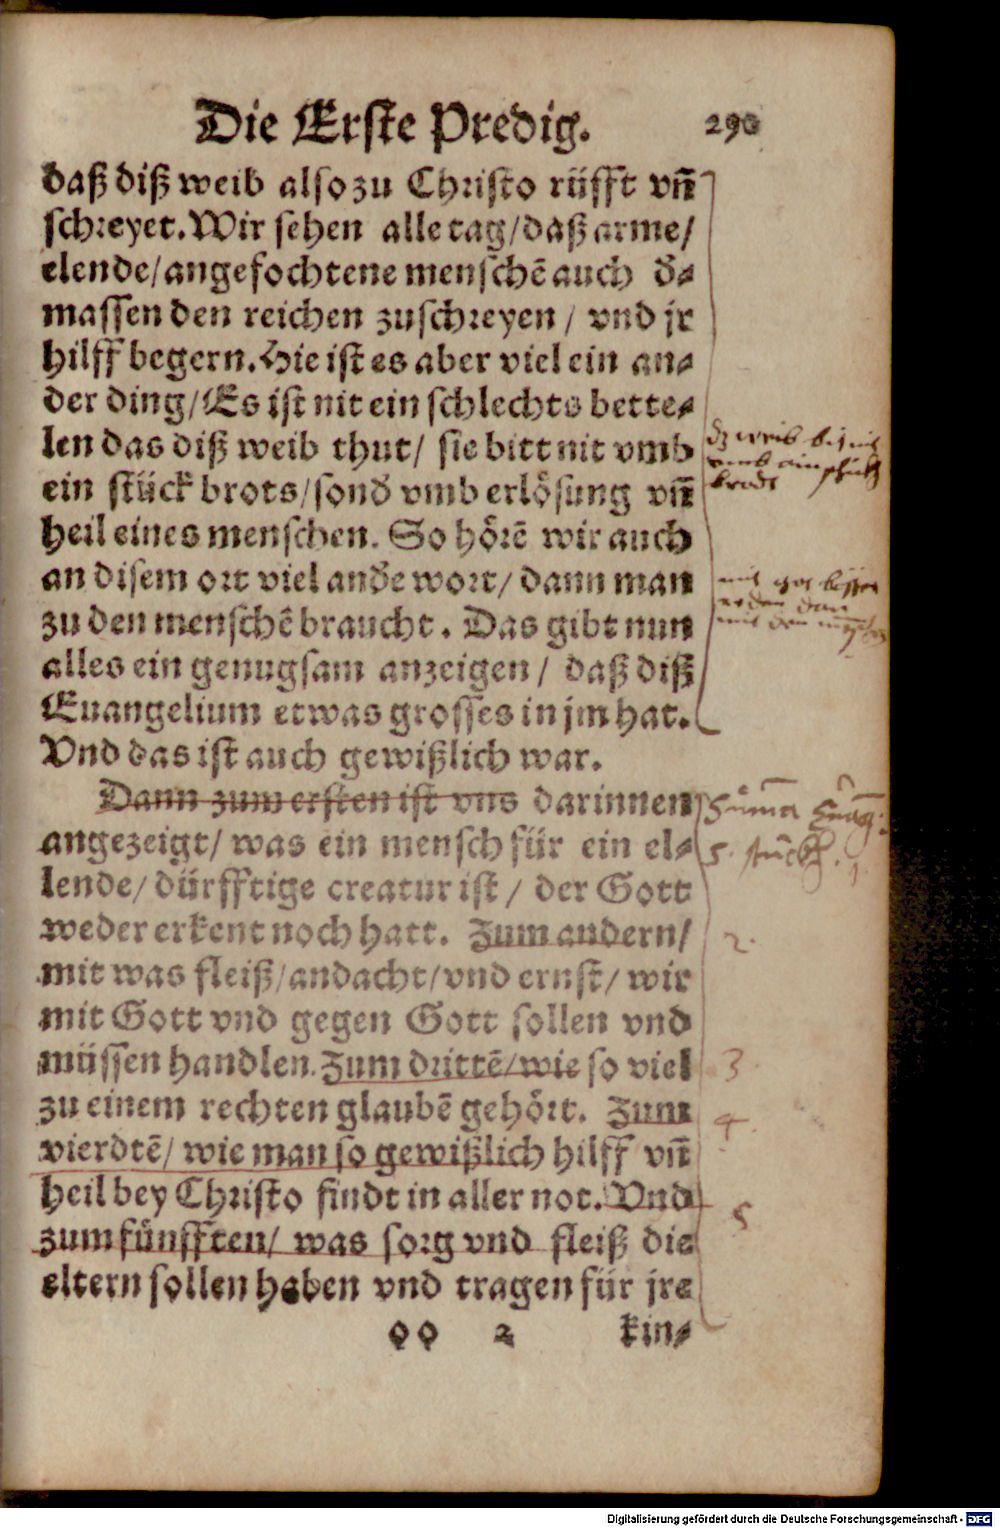 Die Erste Predig. 290
daß diß weib also zu Christo rüfft vñ
schreyet. Wir sehen alle tag/ daß arme/
elende/ angefochtene menschẽ auch d'⸗
massen den reichen zuschreyen / vnd jr
hilff begern. Hie ist es aber viel ein an⸗
der ding/ Es ist nit ein schlechts bette⸗
len das diß weib thut/ sie bitt nit vmb
ein stück brots/ sond' vmb erlösung vñ
heil eines menschen. So hörẽ wir auch
an disem ort viel and'e wort/ dann man
zu den menschẽ braucht. Das gibt nun
alles ein genugsam anzeigen / daß diß
Euangelium etwas grosses in jm hat.
Vnd das ist auch gewißlich war.
Dann zum ersten ist vns darinnen
angezeigt/ was ein mensch für ein el⸗
lende/ dürfftige creatur ist / der Gott
weder erkent noch hatt. Zum andern/
mit was fleiß/ andacht/ vnd ernst/ wir
mit Gott vnd gegen Gott sollen vnd
müssen handlen. Zum drittẽ/ wie so viel
zu einem rechten glaubẽ gehört. Zum
vierdtẽ/ wie man so gewißlich hilff vñ
heil bey Christo findt in aller not. Vnd
zum fünfften/ was sorg vnd fleiß die
eltern sollen haben vnd tragen für jre
QQ 2 kin⸗
weib
brodt
Summa
5. stuckh. 1.
2.
3
4.
5
Digitalisierung gefördert durch die Deutsche Forschungsgemeinschaft - DFG